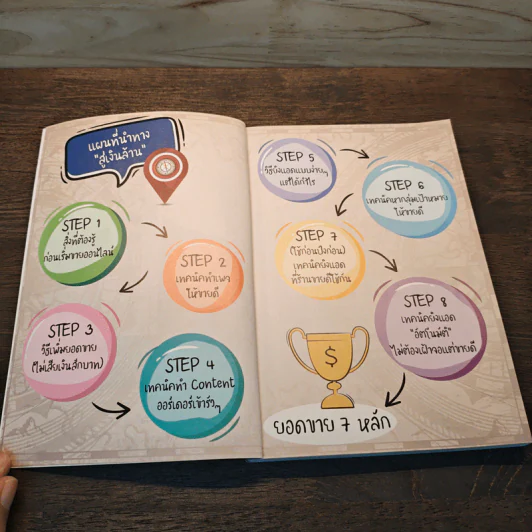 แผนที่นำทาง
"สู่เงินล้าน"
STEP 1
สิ่งที่ต้องรู้
ก่อนเริ่มขายออนไลน์
STEP 2
เทคนิคทำเพจ
ให้ขายดี
STEP 3
วิธีเพิ่มยอดขาย
(ไม่เสียเงินสักบาท)
STEP 4
เทคนิคทำ Content
ออร์เดอร์เข้ารัวๆ
STEP 5
วิธียิงแอดแบบง่ายๆ
แต่ได้กำไร
STEP 6
เทคนิคหากลุ่มเป้าหมาย
ให้ขายดี
STEP 7
(ใช้ก่อนปังก่อน)
เทคนิคยิงแอด
ที่ร้านขายดีใช้กัน
STEP 8
เทคนิคยิงแอด
"อัตโนมัติ"
ไม่ต้องเฝ้าจอแต่ขายดี
$
ยอดขาย 7 หลัก